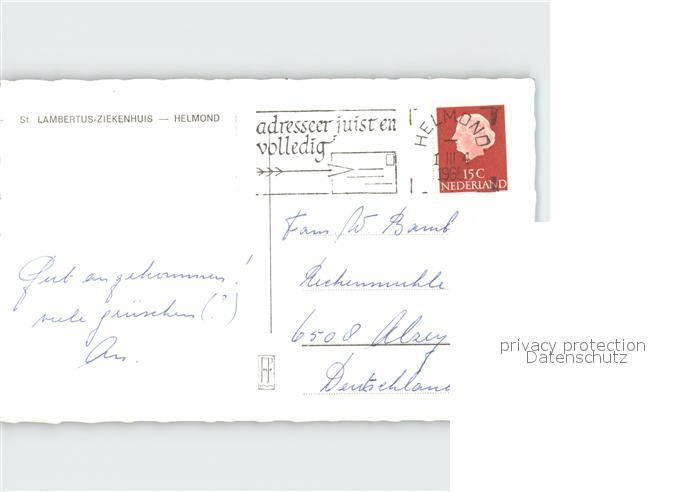 St. LAMBERTUS-ZIEKENHUIS — HELMOND
adresseer juist en
volledig
HELMOND
1 III 4
1966
15 C
NEDERLAND
Gut angekommen!
viele grüschen (?)
An.
Fam. W Bamb
Rechenmuhle
6508 Alzey
Deutschland
privacy protection
Datenschutz